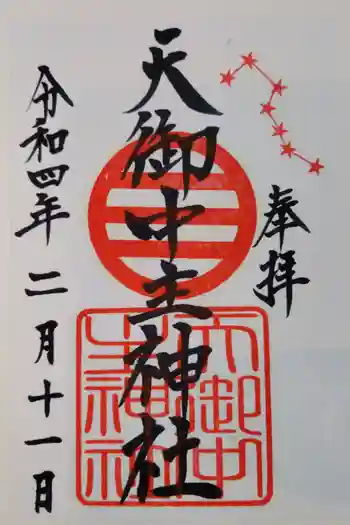 奉拝
天御中主神社
令和四年 二月十一日
天御中
主神社